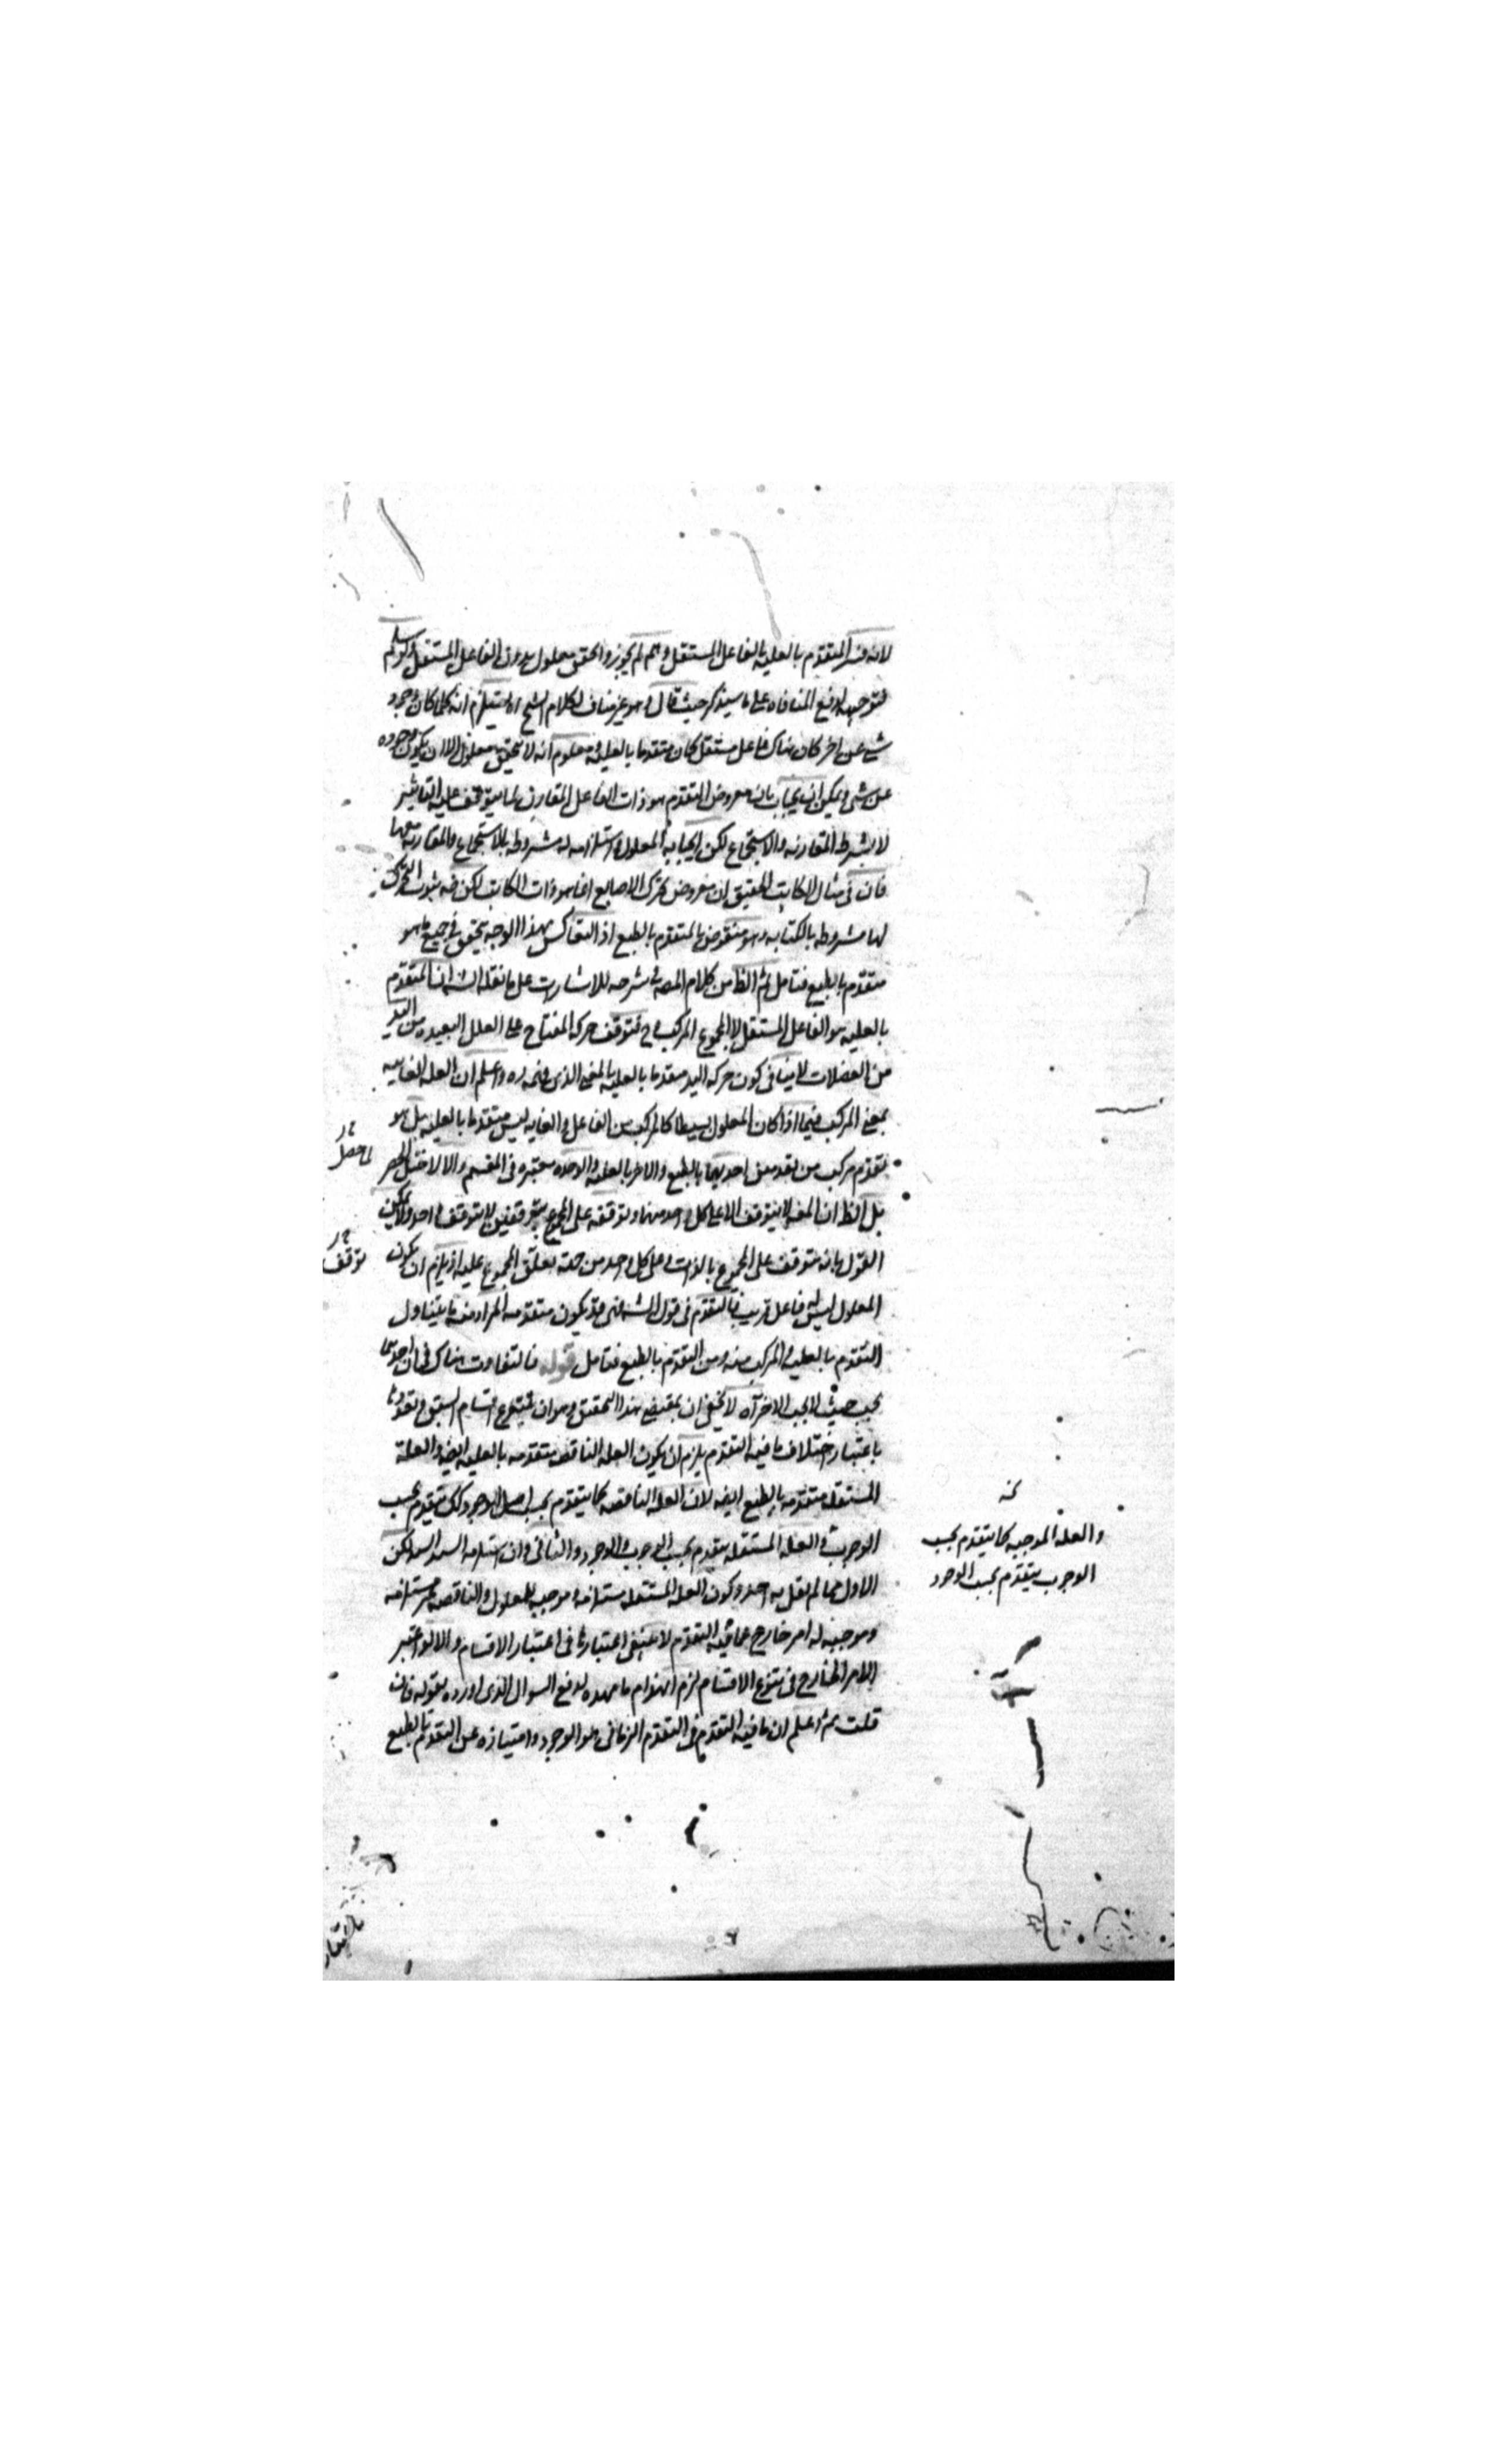 لانه فسر المتقدم بالعلية بالفاعل المستقل وهم لم يجوزوا تحقق معلول بدون الفاعل المستقل
فتوجيه لدفع المنافاه على ما سيذكر حيث قال وهو غير مناف لكلام الشيخ اه يستلزم انه كلما كان وجود
شي عن اخر كان هناك فاعل مستقل كان متقدما بالعلية ومعلوم انه لا يتحقق معلول الا ان يكون وجوده
عن شي ويمكن ان يجاب بان معروض التقدم هو ذات الفاعل المقارن لما يتوقف عليه التاثير
لا بشرط المقارنه والاستجماع لكن ايجابه المعلول واستلزامه له مشروطه بالاستجماع والمقارنه
فان فى مثال الكاتب التحقيق ان معروض تحرك الاصابع انما هو ذات الكاتب لكن فيه ثبوت التحرك
لها مشروطه بالكتابه وهو منقوض بالمتقدم بالطبع اذ التعاكس بهذا الوجه تحقق فى جميع ما هو
متقدم بالطبع فتامل ثم الظ من كلام المصه فى شرحه للاشارات على ما نقله الشه ان المتقدم
بالعليه هو الفاعل المستقل لا المجموع المركب فح فتوقف حركه المفتاح على العلل البعيده من اليد
من العضلات لا ينافى كون حركه اليد متقدما بالعليه بالمعنى الذى واعلم ان العله الغاييه
بمعنى المركب فيما اذا كان المعلول بسيطا كالمركب من الفاعل والغايه ليس متقدما بالعليه بل هو
متقدم مركب من تقدمين احديهما بالطبع والاخر بالعليه والوحده معتبره فى المقسم والا لاختل الحصر
بل الظ ان المعه لا يتوقف الا على كل واحد منهما وتوقفه على المجموع بتوقفين لا بتوقف واحد ولا يمكن
القول بانه متوقف على المجموع بالذات وعلى كل واحد من جهة تعلق المجموع عليه اذ يلزم ان يكون
المعلول ليس له فاعل قريب فالتقدم فى قول الشه فهى قد يكون متقدمه المراد منه ما يتناول
التقدم بالعليه والمركب منه ومن التقدم بالطبع فتامل قوله فالتفاوت هناك فى ان احديهما
يجب حيث لا يجب الاخر اه لا يخفى ان بمقتضى هذا التحقيق وهو ان تتنوع اقسام السبق وتعددها
باعتبار اختلاف ما فيه التقدم يلزم ان يكون العله الناقصه متقدمه بالعليه ايضه والعلة
المستقله متقدمه بالطبع ايضه لان العله الناقصه كما يتقدم بحسب اصل الوجود كك يتقدم بحسب
الوجوب والعله المستقله يتقدم بحسب الوجوب والوجود والثانى وان لكن
الاول مما لم يقل به احد وكون العله المستقله مستلزمه وموجبه للمعلول والناقصه غير مستلزمه
وموجبه له امر خارج عما فيه التقدم لا ينبغى اعتباره فى اعتبار الاقسام والا لو اعتبر
الامر الخارج فى تنوع الاقسام لزم انهدام ما مهده لدفع السوال الذى اورده بقوله فان
قلت ثم اعلم ان ما فيه التقدم فى التقدم الزمانى هو الوجود وامتيازه عن التقدم بالطبع
ما حصل
توقف
والعله الموجبه كما يتقدم بحسب
الوجوب يتقدم بحسب الوجود